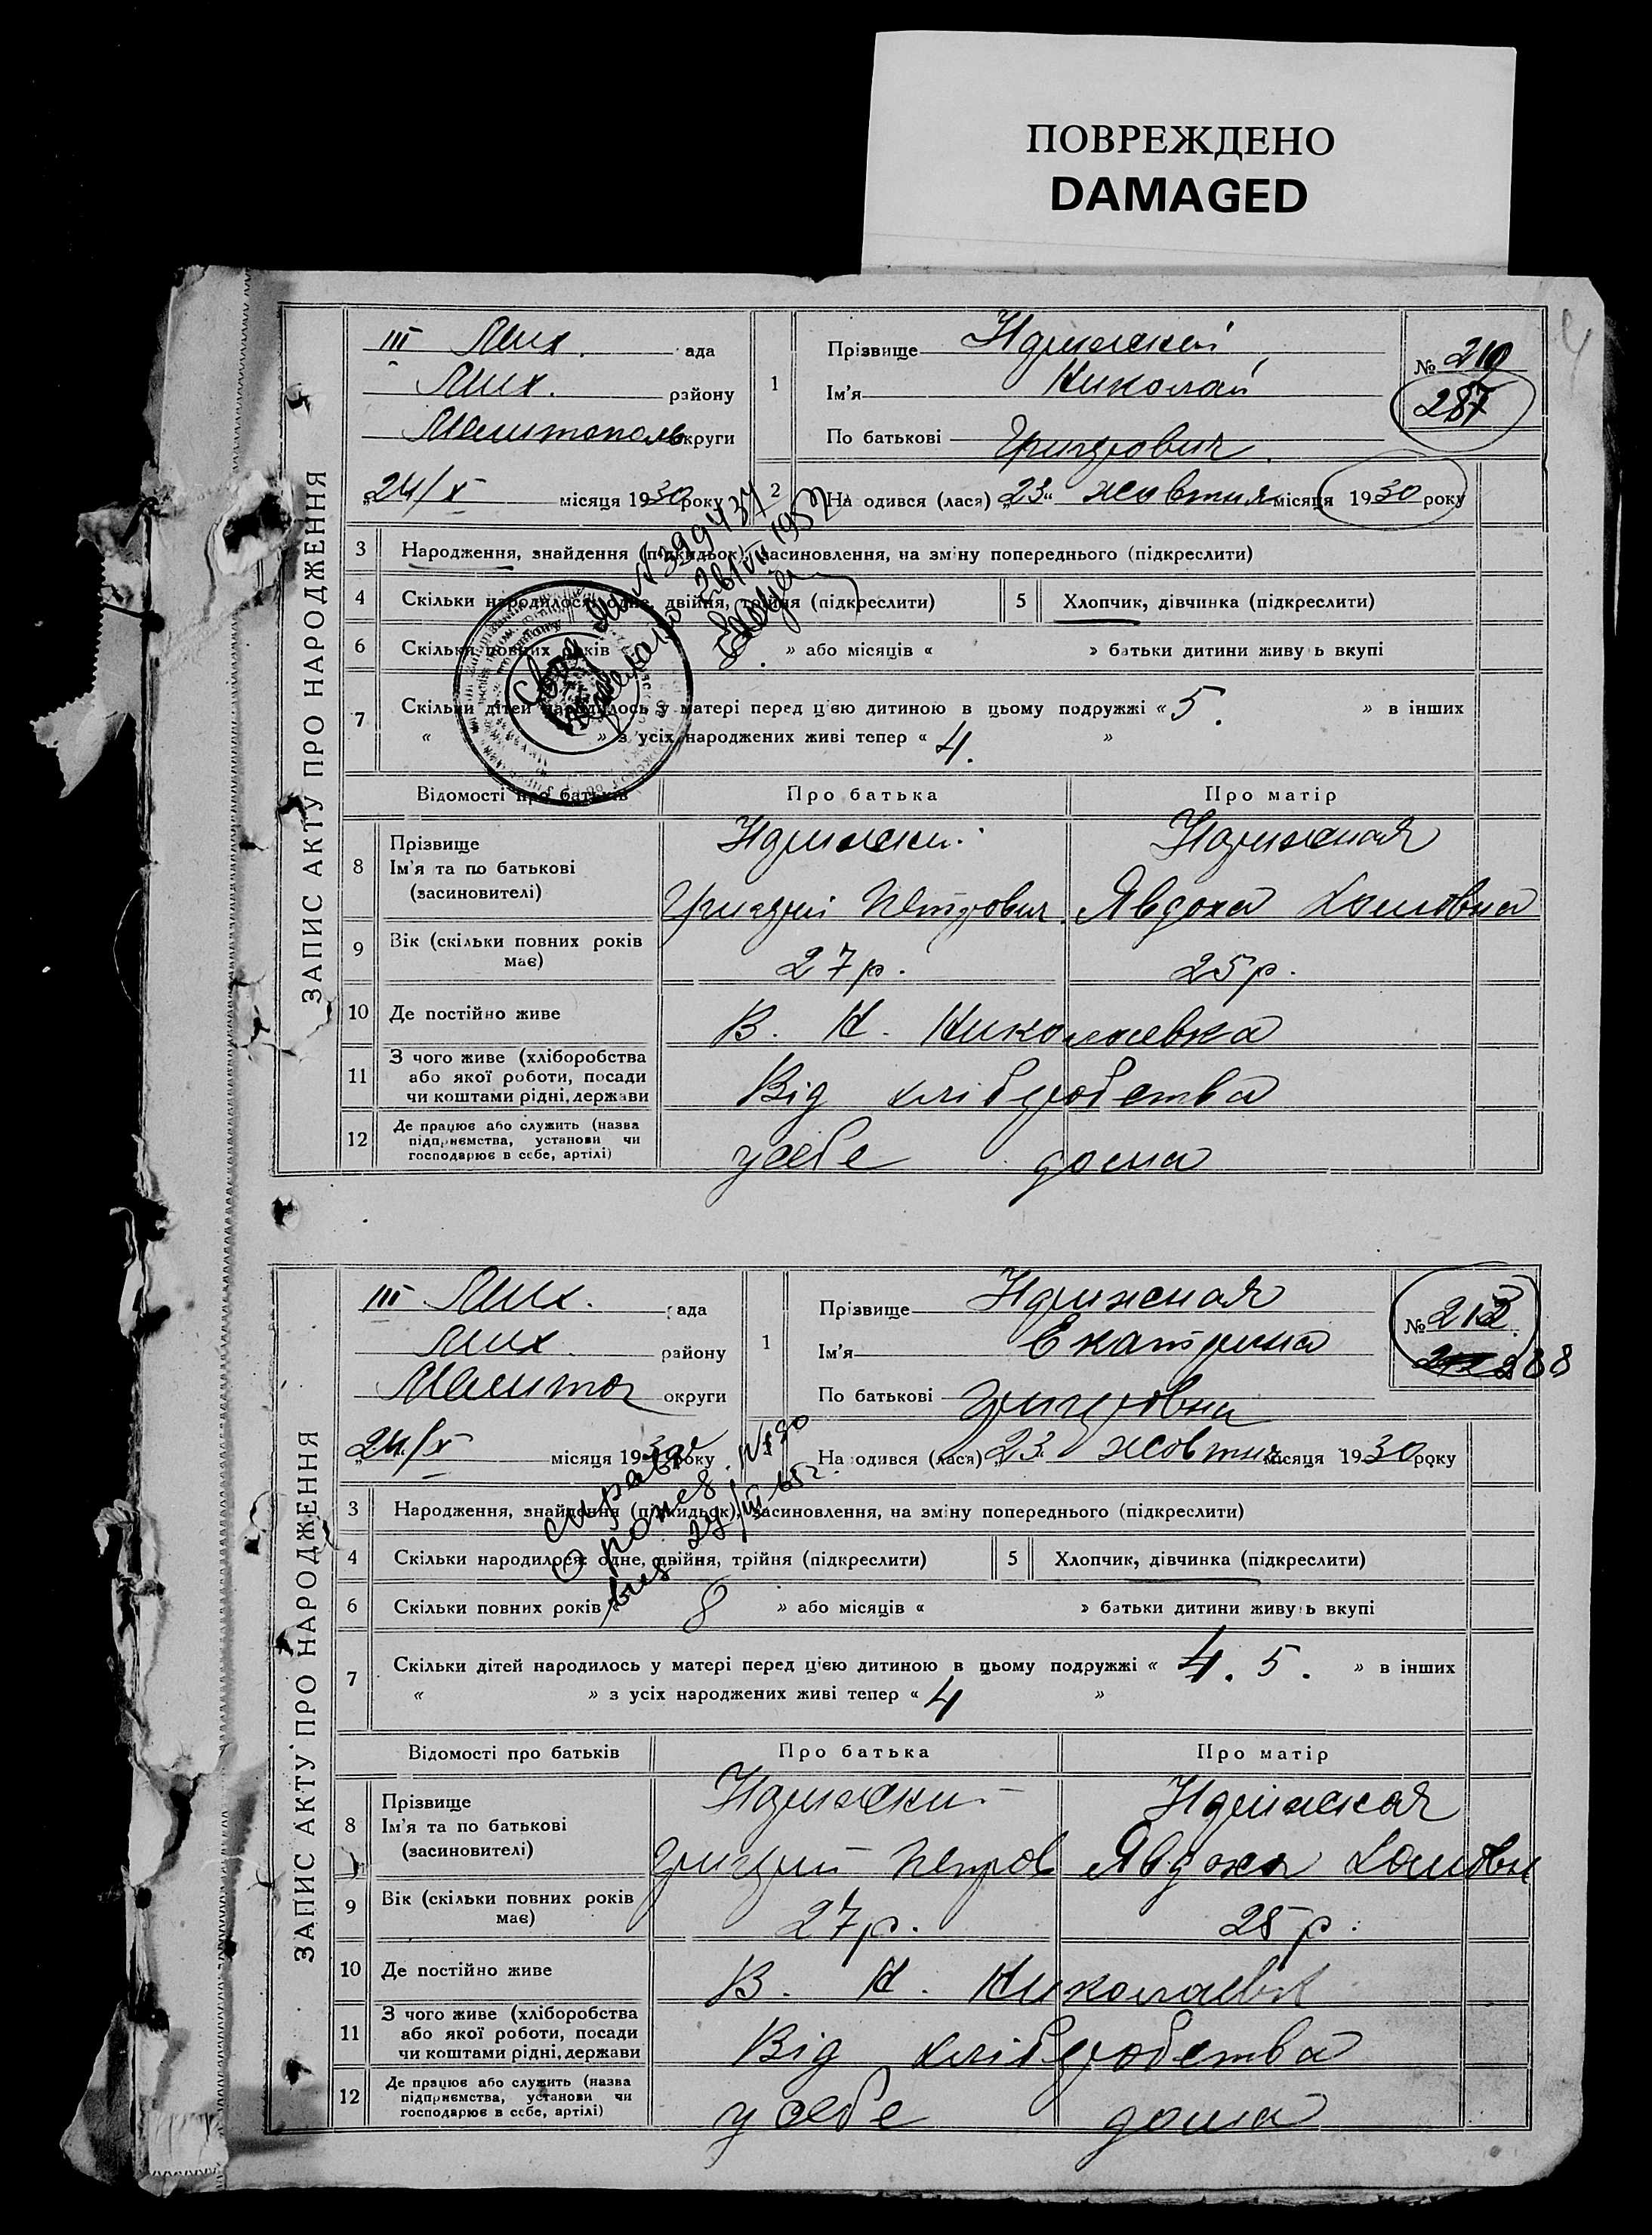 ПОВРЕЖДЕНО
DAMAGED
ЗАПИС АКТУ ПРО НАРОДЖЕННЯ
III Мих. ада
Мих. району
Мелитополь округи
„24/X місяця 1930 року
1
Прізвище
Ім'я Николай
По батькові Григорович
№ 210
287
2 На одився (лася) „23“ жовтня місяця 1930 року
3 Народження, знайдення (підкидьок), засиновлення, на зміну попереднього (підкреслити)
4 Скільки народилося: одне, двійня, трійня (підкреслити)
5 Хлопчик, дівчинка (підкреслити)
6 Скільки повних років » або місяців « » батьки дитини живу ь вкупі
7 Скільки дітей народилось у матері перед цією дитиною в цьому подружжі « 5. » в інших
« » з усіх народжених живі тепер « 4. »
Відомості про батьків Про батька Про матір
8 Прізвище
Ім'я та по батькові
(засновителі)
Григорій Петрович Явдоха
9 Вік (скільки повних років має) 27 р. 25 р.
10 Де постійно живе В. К. Николаевка
11 З чого живе (хліборобства або якої роботи, посади чи коштами рідні, держави Від хліборобства
12 Де працює або служить (назва підприємства, установи чи господарює в себе, артілі) у себе дома
ЗАПИС АКТУ ПРО НАРОДЖЕННЯ
III Мих. ада
Мих. району
Мелитоп округи
„24/X місяця 1930 року
1
Прізвище
Ім'я Екатерина
По батькові Григоровна
№ 212.
288
На одився (лася) „23. жовтня місяця 1930 року
3 Народження, знайдення (підкидьок), засиновлення, на зміну попереднього (підкреслити)
4 Скільки народилося: одне, двійня, трійня (підкреслити)
5 Хлопчик, дівчинка (підкреслити)
6 Скільки повних років « 8 » або місяців « » батьки дитини живу ь вкупі
7 Скільки дітей народилось у матері перед цією дитиною в цьому подружжі « 4. 5. » в інших
« » з усіх народжених живі тепер « 4 »
Відомості про батьків Про батька Про матір
8 Прізвище
Ім'я та по батькові
(засиновителі)
Григорій Петров Явдоха
9 Вік (скільки повних років має) 27 р. 25 р.
10 Де постійно живе В. К. Николаевк
11 З чого живе (хліборобства або якої роботи, посади чи коштами рідні, держави Від хліборобства
12 Де працює або служить (назва підприємства, установи чи господарює в себе, артілі) у себе дома